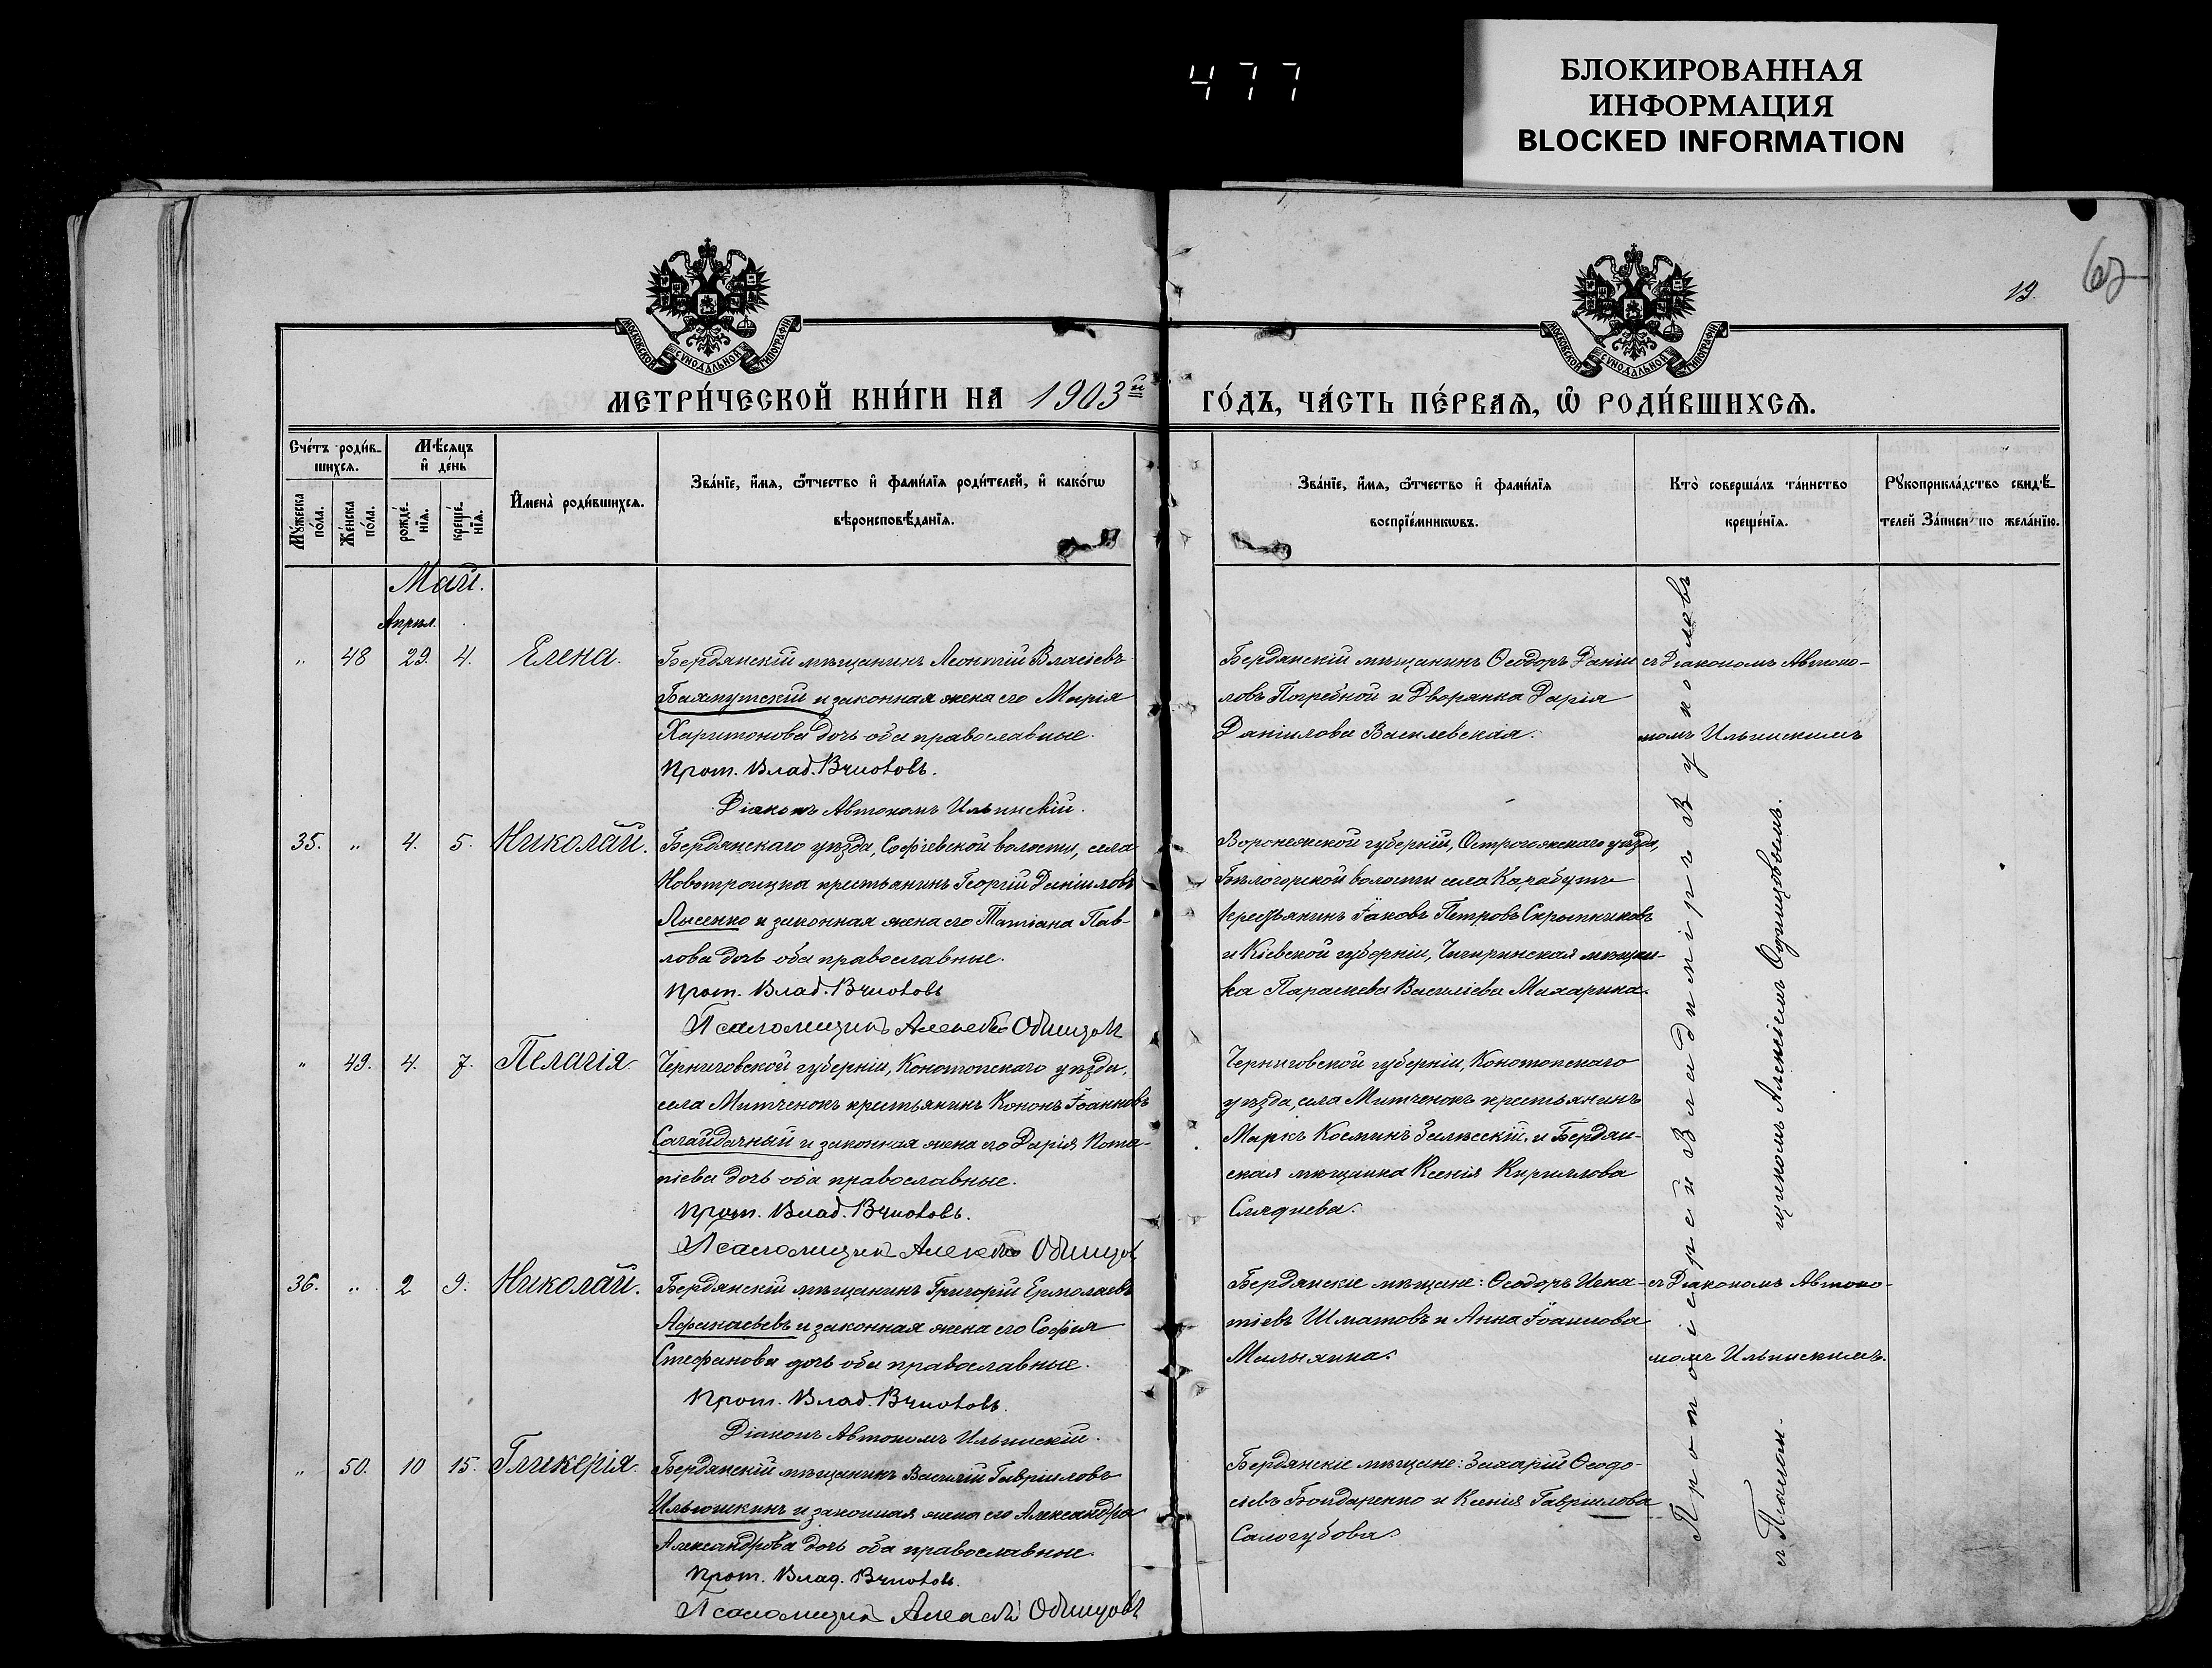 477
БЛОКИРОВАННАЯ
ИНФОРМАЦИЯ
BLOCKED INFORMATION
19.
МОСКОВСКОЙ СѴНОДАЛЬНОЙ ТИПОГРАФІИ
МОСКОВСКОЙ СѴНОДАЛЬНОЙ ТИПОГРАФІИ
МЕТРИ́ЧЕСКОЙ КНИ́ГИ НА 1903й
ГО́ДЪ, ЧА́СТЬ ПЕ́РВАѦ, Ѽ РОДИ́ВШИХСѦ.
Сче́тъ роди́в-
шихсѧ.
Мѣ́сѧцъ
и҆ де́нь
Мꙋ́жеска
по́ла.
Же́нска
по́ла.
рожде́-
нїѧ.
креще́-
нїѧ.
И҆мена̀ роди́вшихсѧ.
Зва́нїе, и҆́мѧ, ѻ҆́тчество и҆ фами́лїѧ роди́телей, и҆ како́гѡ
вѣроисповѣ́данїѧ.
Зва́нїе, и҆́мѧ, ѻ҆́тчество и҆ фами́лїѧ
воспрїе́мникѡвъ.
Кто̀ соверша́лъ та́инство
креще́нїѧ.
Рꙋкоприкла́дство свидѣ́-
телей За́писи по жела́нїю.
Май.
Апрѣл.
" 48 29. 4. Елена.
Бердянскій мѣщанинъ Леонтій Власіевъ
Бахмутскій и законная жена его Марія
Харитонова дочь оба православные.
Прот. Влад. Вуколовъ.
Діаконъ Автономъ Ильинскій.
Бердянскій мѣщанинъ Ѳеодоръ Даніи
ловъ Погребной и Дворянка Дарія
Даніилова Василевская.
съ Діакономъ Автоно-
момъ Ильинскимъ
35. " 4. 5. Николай.
Бердянскаго уѣзда, Софіевской волости, села
Новотроицка крестьянинъ Георгій Даніиловъ
Лысенко и законная жена его Татіана Пав-
лова дочь оба православные.
Прот. Влад. Вуколовъ
Псаломщикъ Алексѣй Одинцовъ
Воронежской губерній, Острогожскаго уѣзда,
Бѣлогорской волости села Карабутъ
крестьянинъ Іаковъ Петровъ Скрыпниковъ
и Кіевской губерніи, Чигиринская мѣщан-
ка Параскева Василіева Махарина.
" 49. 4. 7. Пелагія.
Черниговской губерніи, Конотопскаго уѣзда,
села Митченокъ крестьянинъ Кононъ Іоанновъ
Сагайдачный и законная жена его Дарія Пота-
піева дочь оба православные.
Прот. Влад. Вуколовъ.
Псаломщикъ Алексѣй Одинцов
Черниговской губерніи, Конотопскаго
уѣзда, села Митченокъ крестьянинъ
Маркъ Косминъ Залѣсскій, и Бердян-
ская мѣщанка Ксенія Кириллова
36. " 2 9. Николай.
Бердянскій мѣщанинъ Григорій Ермолаевъ
Афанасьевъ и законная жена его Софія
Стефанова дочь оба православные.
Прот. Влад. Вуколовъ.
Діаконъ Автономъ Ильинскій.
Бердянскіе мѣщане: Ѳеодоръ Игна-
тіевъ Шматовъ и Анна Іоаннова
съ Діакономъ Автоно-
момъ Ильинскимъ.
" 50. 10 15. Гликерія.
Бердянскій мѣщанинъ Василій Гавріиловъ
Ильюшкинъ и законная жена его Александра
Александрова дочь оба православные.
Прот. Влад. Вуколовъ.
Псаломщикъ Алексѣй Одинцовъ
Бердянскіе мѣщане: Захарій Ѳеодо-
сіевъ Бондаренко и Ксенія Гавріилова
Сологубова.
Протоіерей Владиміръ Вуколовъ
съ Псалом-
щикомъ Алексѣемъ Одинцовымъ.